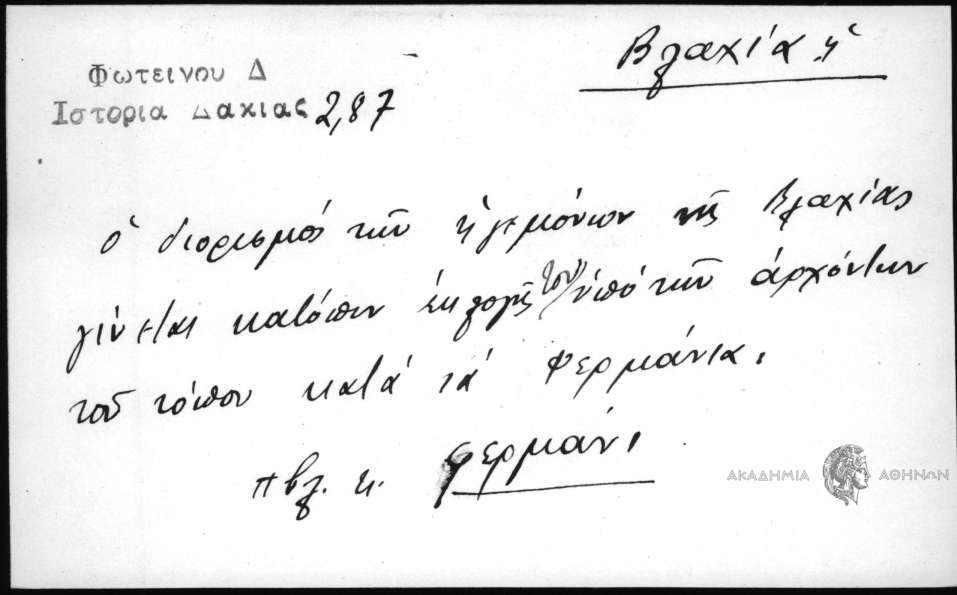 Βλαχία, ἡ
Φωτεινου Δ
Ιστορια Δακιας 2,87
ὁ διορισμός τῶν ἡγεμόνων τῆς Βλαχίας
γίνεται κατόπιν ἐκλογῆς των ὑπό τῶν ἀρχόντων
τοῦ τόπου κατά τά φερμάνια.
πβλ. κ. φερμάνι
ΑΚΑΔΗΜΙΑ ΑΘΗΝΩΝ